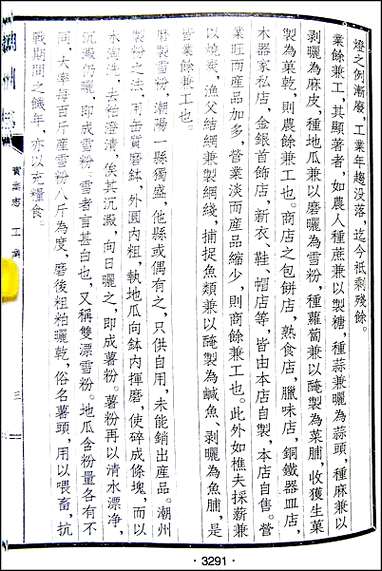 燈之例漸廢，工業年趨没落，迄今祇剩殘餘。
業餘兼工，其顯著者，如農人種蔗兼以製糖，種蒜兼曬為蒜頭，種麻兼以
剥曬為麻皮，種地瓜兼以磨曬為雪粉，種蘿蔔兼以醃製為菜脯，收獲生菓
製為菓乾，則農餘兼工也。商店之包餅店，熟食店，臘味店，銅鐵器皿店，
木器家私店，金銀首飾店，新衣、鞋、帽店等，皆由本店自製，本店自售。營
業旺而產品加多，營業淡而產品縮少，則商餘兼工也。此外如樵夫採薪兼
以燒炭，漁父結網兼製網綫，捕捉魚類兼以醃製為鹹魚、剥曬為魚脯，是
皆業餘兼工也。
磨製雪粉，潮陽一縣獨盛，他縣或偶有之，只供自用，未能銷出產品。潮州
製粉之法，用缶質磨鉢，外圓内粗，執地瓜向鉢内揮磨，使碎成條塊，而以
水淘洗，去粕澄清，俟其沉澱，向日曬之，即成薯粉。薯粉再以清水漂净，
沉澱仍曬，即成雪粉。雪者言甚白也，又稱雙漂雪粉。地瓜含粉量各有不
同，大率每百斤產雪粉八斤為度、磨後粗粕曬乾，俗名薯頭，用以喂畜，抗
戰期間之饑年，亦以充糧食。
潮州志
實業志 工業
三
·3291·